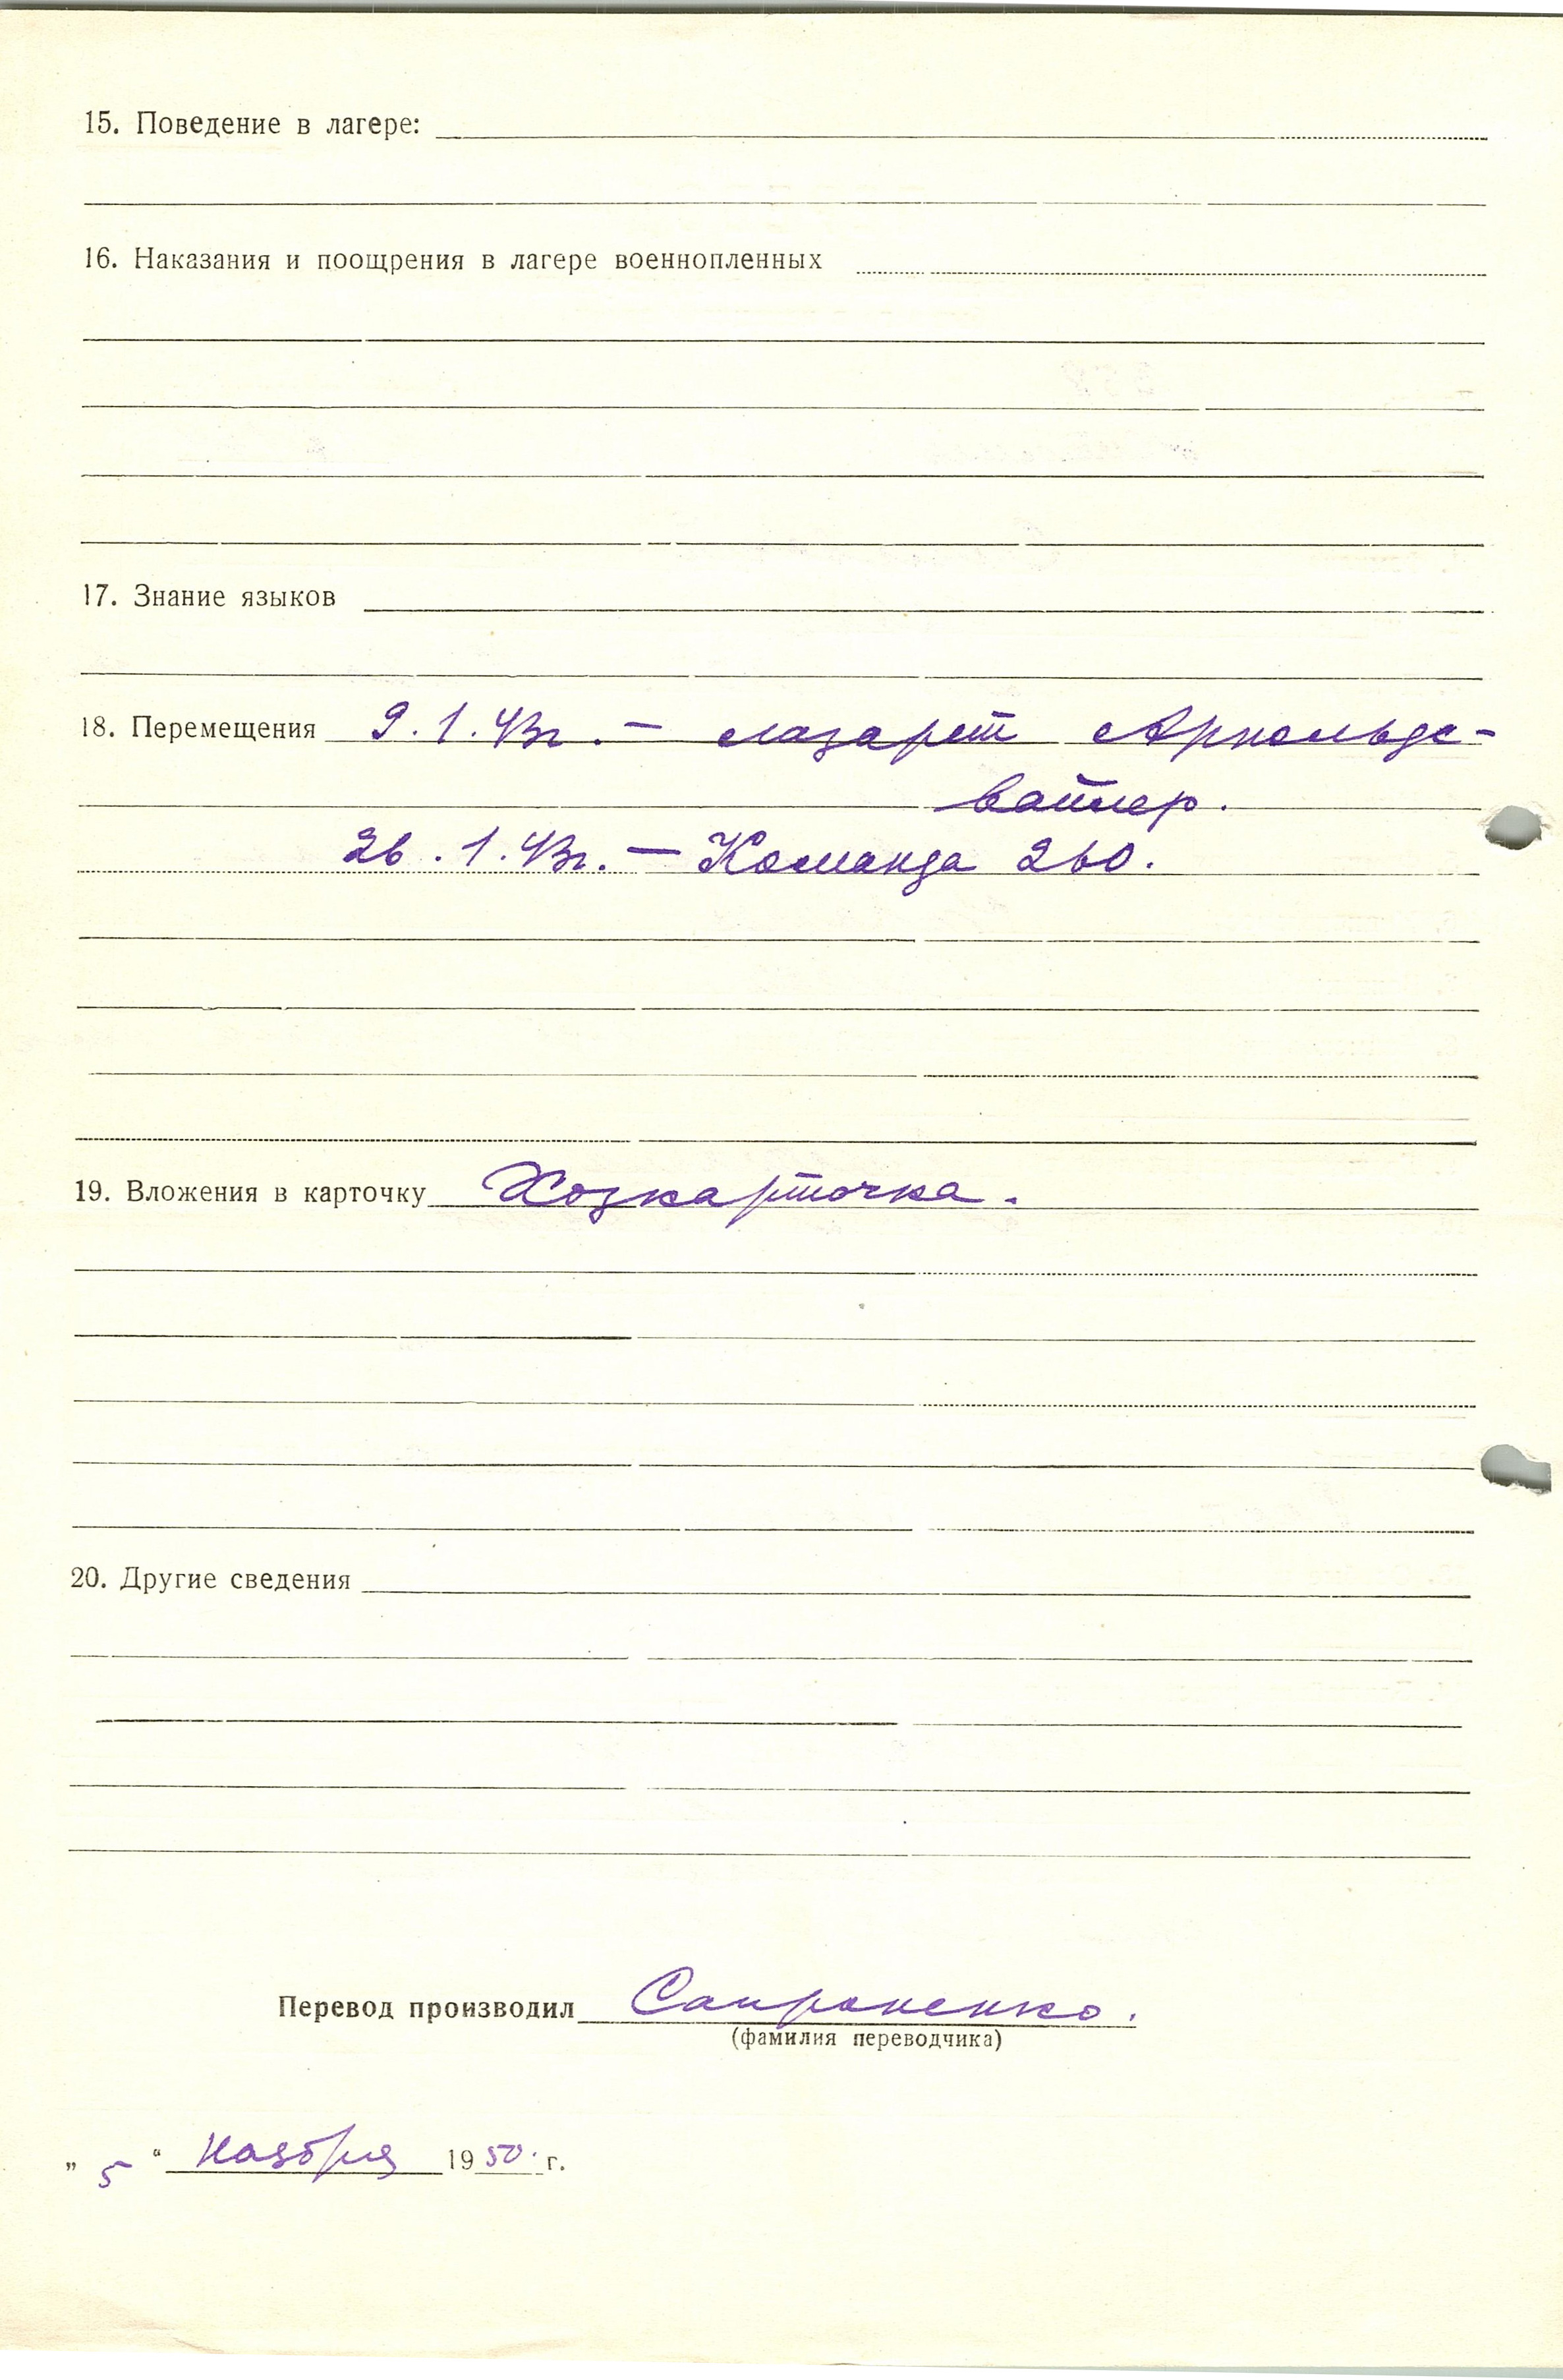 15. Поведение в лагере:
16. Наказания и поощрения в лагере военнопленных
17. Знание языков
18. Перемещения 9.1.43г. — лазарет Арнольдс-
вайлер.
26.1.43г. — Команда 260.
19. Вложения в карточку Хозкарточка.
20. Другие сведения
Перевод производил Сапроненко.
(фамилия переводчика)
„ 5 “ ноября 1950 г.